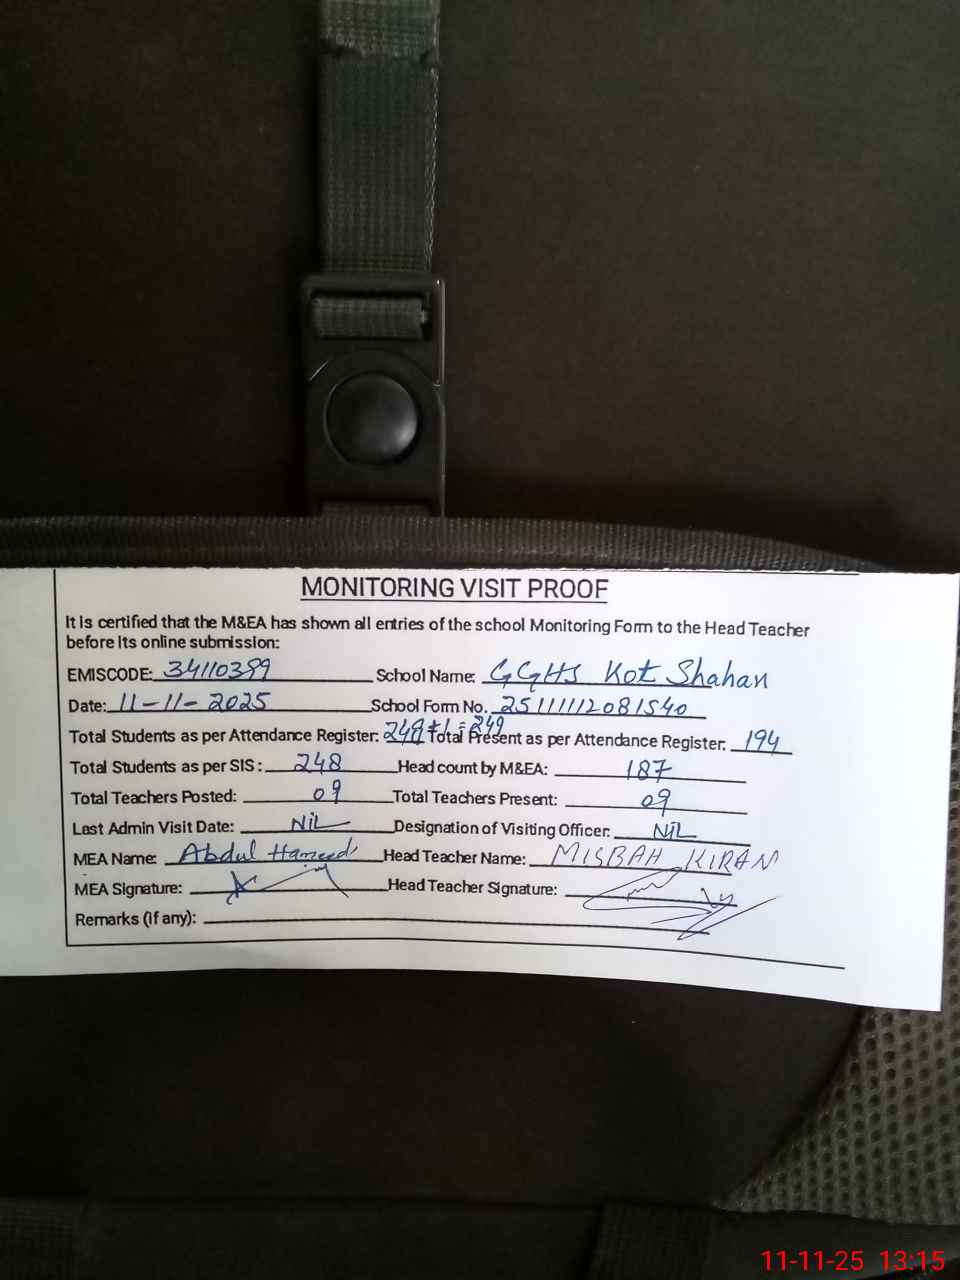 MONITORING VISIT PROOF
It is certified that the M&EA has shown all entries of the school Monitoring Form to the Head Teacher
before its online submission:
EMISCODE: 34110399 School Name: GGHS Kot Shahan
Date: 11-11-2025 School Form No. 25111112081540
Total Students as per Attendance Register: 248+1=249 Total Present as per Attendance Register: 194
Total Students as per SIS: 248 Head count by M&EA: 187
Total Teachers Posted: 09 Total Teachers Present: 09
Last Admin Visit Date: NiL Designation of Visiting Officer: NiL
MEA Name: Abdul Hameed Head Teacher Name: MISBAH KIRAN
MEA Signature: Head Teacher Signature:
Remarks (if any):
11-11-25 13:15